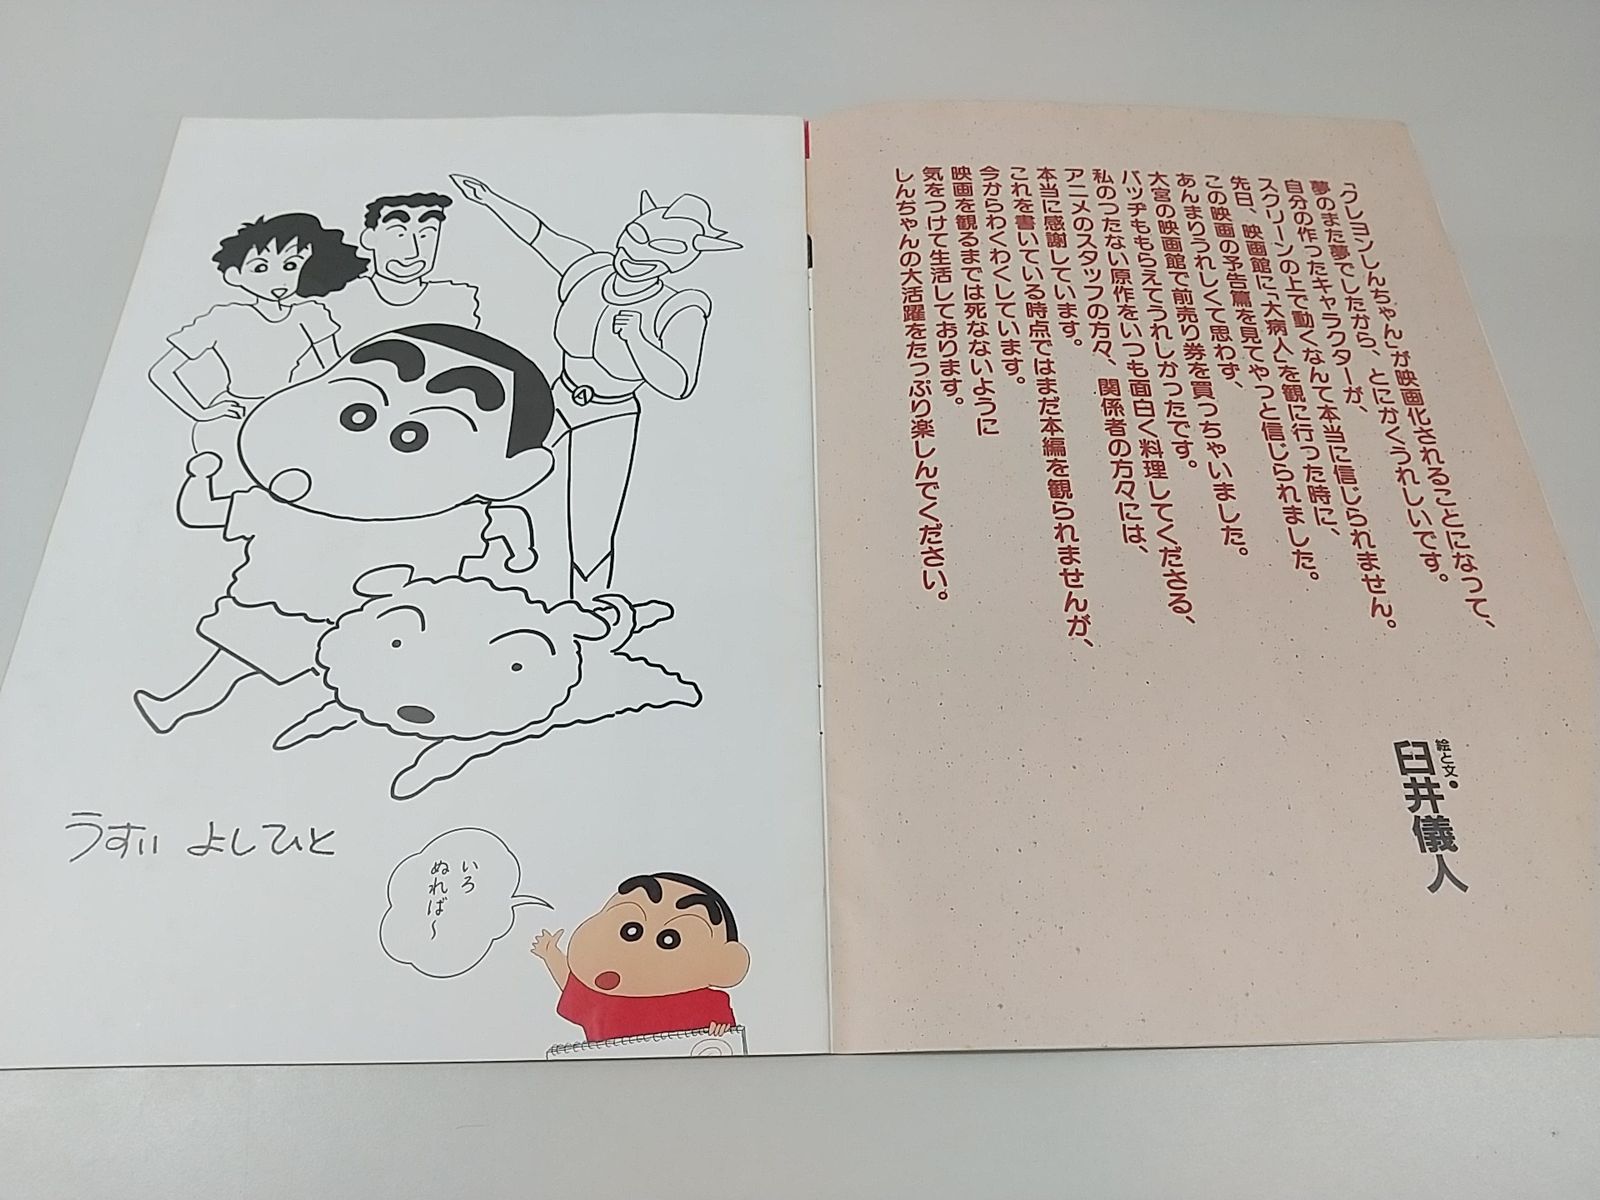 「クレヨンしんちゃん」が映画化されることになって、
夢のまた夢でしたから、とにかくうれしいです。
自分の作ったキャラクターが、
スクリーンの上で動くなんて本当に信じられません。
先日、映画館に「大病人」を観に行った時に、
この映画の予告篇を見てやっと信じられました。
あんまりうれしくて思わず、
大宮の映画館で前売り券を買っちゃいました。
バッヂももらえてうれしかったです。
私のつたない原作をいつも面白く料理してくださる、
アニメのスタッフの方々、関係者の方々には、
本当に感謝しています。
これを書いている時点ではまだ本編を観られませんが、
今からわくわくしています。
映画を観るまでは死なないように
気をつけて生活しております。
しんちゃんの大活躍をたっぷり楽しんでください。
絵と文・
臼井儀人
うすい よしひと
いろ
ぬれば〜